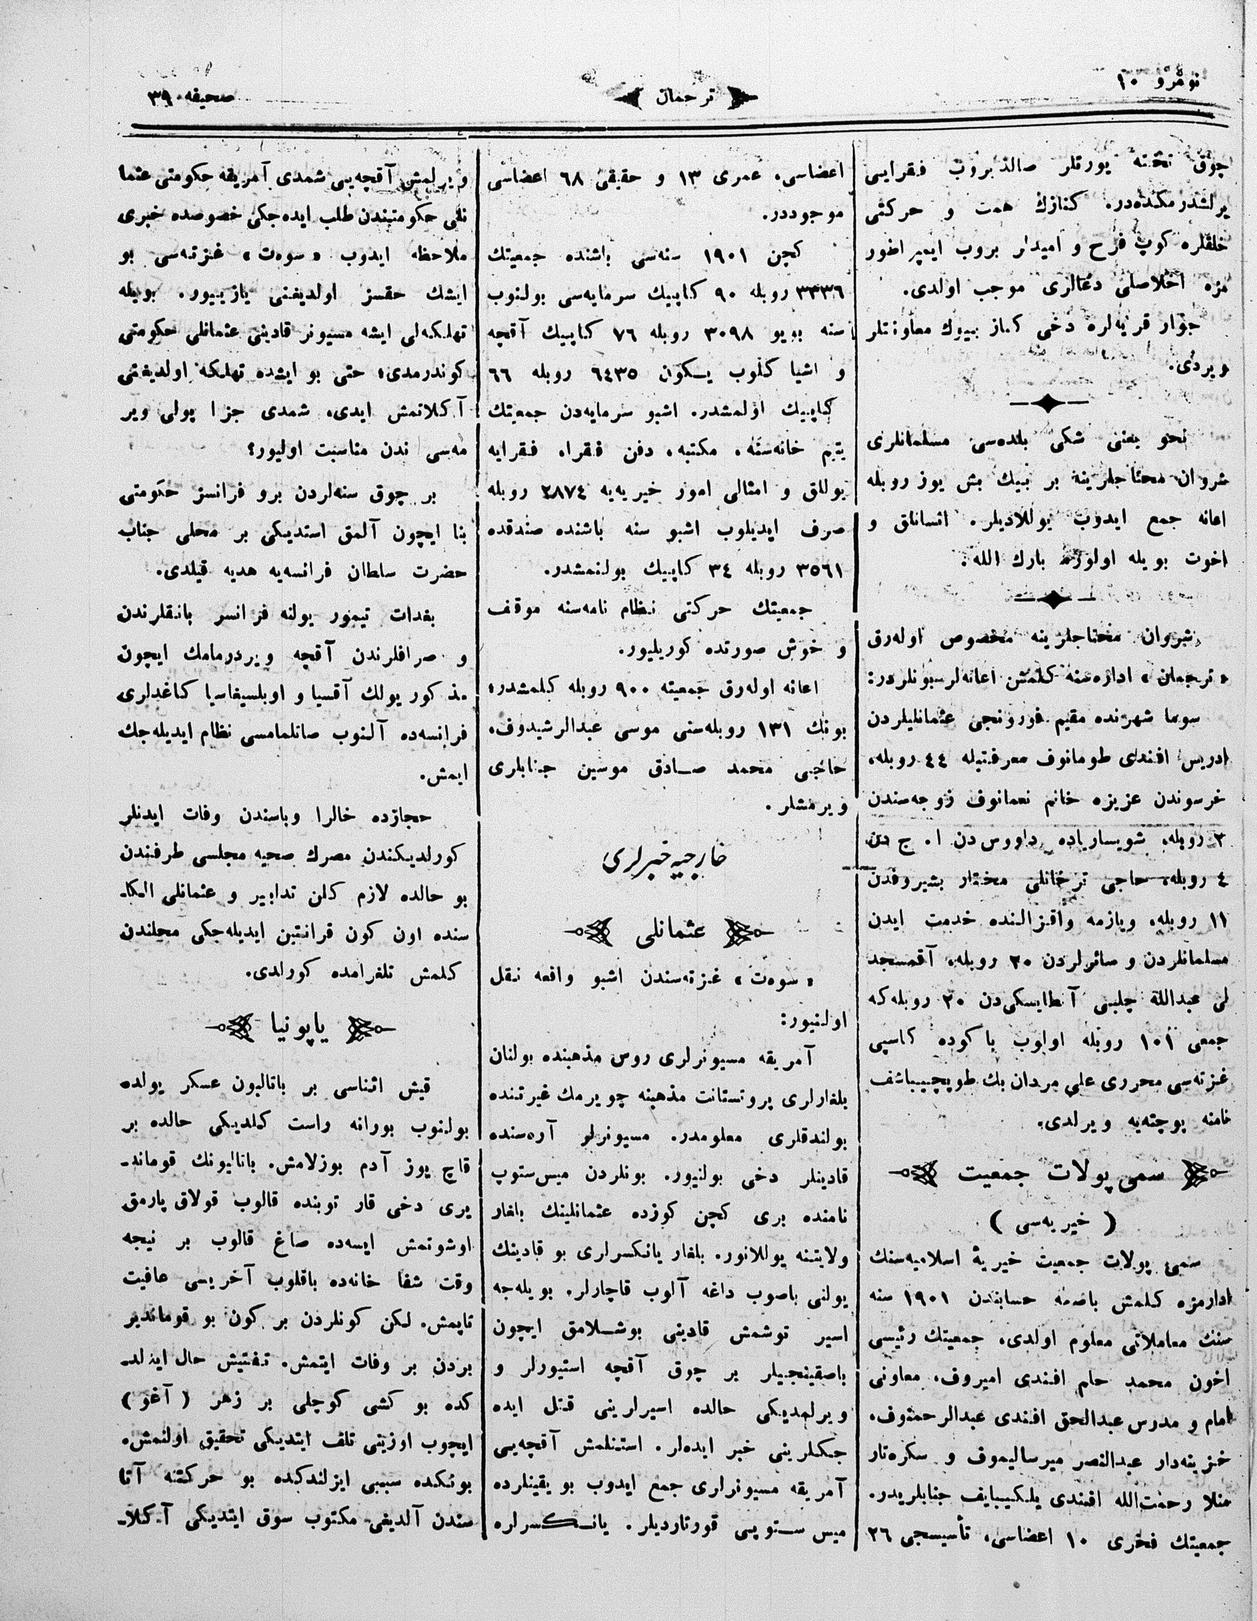 نومرو ۱۰
ترجمان
صحیفه ۳۹
چوق تخته یورتلر صالدیروب فقرایی
یرلشدرمکده‌در. کنازك همت و حرکتی
خلقلره کوپ فرح و امیدلر بروب ایمپراطور
مزه اخلاصلی دعالری موجب اولدی.
جوار قریه‌لره دخی کناز بیوك معاونتلر
ویردی.
نخو یعنی شکی بلده‌سی مسلمانلری
شروان محتاجلرینه بر بیك بش یوز روبله
اعانه جمع ایدوب یوللادیلر. انسانلق و
اخوت بویله اولور. بارك الله.
شروان محتاجلرینه مخصوص اوله‌رق
«ترجمان» اداره‌سنه کلمش اعانه‌لر بونلردر:
سوما شهرنده مقیم فورونجی عثمانلیلردن
ادریس افندی طومانوف معرفتیله ٤٤ روبله،
خرسوندن عزیزه خانم نعمانوف زوجه‌سندن
۲ روبله، شویساریاده داووس دن ا. ج دن
٤ روبله، حاجی ترخانلی مختار بشیروفدن
۱۱ روبله، ویازمه واقزالنده خدمت ایدن
مسلمانلردن و سائرلردن ۲۰ روبله، آقمسجد
لی عبدالله چلبی آطایسکی‌دن ۲۰ روبله که
جمعی ۱۰۱ روبله اولوب باکوده کاسپی
غزته‌سی محرری علی مردان بك طوپچیباشف
نامنه پوچته‌یه ویرلدی.
سمی پولات جمعیت
( خیریه‌سی )
سمی پولات جمعیت خیریهٔ اسلامیه‌سنك
ادارمزه کلمش باصمه حسابندن ۱۹۰۱ سنه
سنك معاملاتی معلوم اولدی. جمعیتك رئیسی
آخون محمد حلم افندی امیروف، معاونی
امام و مدرس عبدالحق افندی عبدالرحمنوف،
خزینه‌دار عبدالنصر میرسالیموف و سکره‌تار
منلا رحمت‌الله افندی یلکیبایف جنابلریدر.
جمعیتك فخری ۱۰ اعضاسی، تأسیسجی ۲٦
اعضاسی، عمری ۱۳ و حقیقی ٦۸ اعضاسی
موجوددر.
کچن ۱۹۰۱ سنه‌سی باشنده جمعیتك
۳۳۳٦ روبله ۹۰ کاپیك سرمایه‌سی بولنوب
سنه بویو ۳۰۹۸ روبله ۷٦ کاپیك آقچه
و اشیا کلوب یکون ٦٤۳٥ روبله ٦٦
کاپیك اولمشدر. اشبو سرمایه‌دن جمعیتك
یتیم خانه‌سنه، مکتبه، دفن فقراء فقرایه
یوللق و امثالی امور خیریه‌یه ۲۸۷٤ روبله
صرف ایدیلوب اشبو سنه باشنده صندقده
۳٥٦۱ روبله ۳٤ کاپیك بولنمشدر.
جمعیتك حرکتی نظام نامه‌سنه موقف
و خوش صورتده کوریلیور.
اعانه اوله‌رق جمعیته ۹۰۰ روبله کلمشدر؛
بونك ۱۳۱ روبله‌سنی موسی عبدالرشیدوف،
حاجی محمد صادق موسین جنابلری
ویرمشلر.
خارجیه خبرلری
عثمانلی
«سوه‌ت» غزته‌سندن اشبو واقعه نقل
اولنیور:
آمریقه مسیونرلری روس مذهبنده بولنان
بلغارلری پروتستانت مذهبنه چویرمك غیرتنده
بولندقلری معلومدر. مسیونرلر آره‌سنده
قادینلر دخی بولنیور. بونلردن میس‌ستوپ
نامنده بری کچن کوزده عثمانلینك بلغار
ولایتنه یوللانور. بلغار یانکسرلری بو قادینك
یولنی باصوب داغه آلوب قاچارلر. بویله‌جه
اسیر توشمش قادینی بوشلامق ایچون
باصقینجیلر بر چوق آقچه استیورلر و
ویرلمدیکی حالده اسیرلرینی قتل ایده
جکلرینی خبر ایده‌لر. استنلمش آقچه‌یی
آمریقه مسیونرلری جمع ایدوب بو یقینلرده
میس ستوپی قورتاردیلر. یانکسرلره
ویرلمش آقچه‌یی شمدی آمریقه حکومتی عثما
نلی حکومتندن طلب ایده‌جکی خصوصده خبری
ملاحظه ایدوب «سوه‌ت» غزته‌سی بو
ایشك حقسز اولدیغنی یازییور. بویله
تهلکه‌لی ایشه مسیونر قادینی عثمانلی حکومتی
کوندرمدی؛ حتی بو ایشده تهلکه اولدیغنی
آکلاتمش ایدی. شمدی جزا پولی ویر
مه‌سی ندن مناسبت اولیور؟
بر چوق سنه‌لردن برو فرانسز حکومتی
بنا ایچون آلمق استدیکی بر محلی جناب
حضرت سلطان فرانسه‌یه هدیه قیلدی.
بغدات تیمور یولنه فرانسز بانقلرندن
و صرافلرندن آقچه ویردرمامك ایچون
مذکور یولك آقسیا و اوبلیسیغاسیا کاغدلری
فرانسه‌ده آلنوب صاتلمامسی نظام ایدیله‌جك
ایمش.
حجازده خالرا وباسندن وفات ایدنلر
کورلدیکندن مصرك صحیه مجلسی طرفندن
بو حالده لازم کلن تدابیر و عثمانلی الکا-
سنده اون کون قرانتین ایدیله‌جکی محلندن
کلمش تلغرامده کورلدی.
یاپونیا
قیش اثناسی بر باتالیون عسکر یولده
بولنوب بورانه راست کلدیکی حالده بر
قاچ یوز آدم بوزلامش. باتالیونك قوماند-
یری دخی قار توبنده قالوب قولاق پارمق
اوشوتمش ایسه‌ده صاغ قالوب بر نیجه
وقت شفا خانه‌ده باقلوب آخریسی عافیت
تاپمش. لکن کونلردن بر کون بو قوماندیر
بردن بر وفات ایتمش. تفتیش حال ایدلد-
کده بو کشی کوچلی بر زهر ( آغو )
ایچوب اوزینی تلف ایتدیکی تحقیق اولنمش.
بونکده سببی ایزلندکده بو حرکتنه آتا
سندن آلدیغی مکتوب سوق ایتدیکی آکلا-